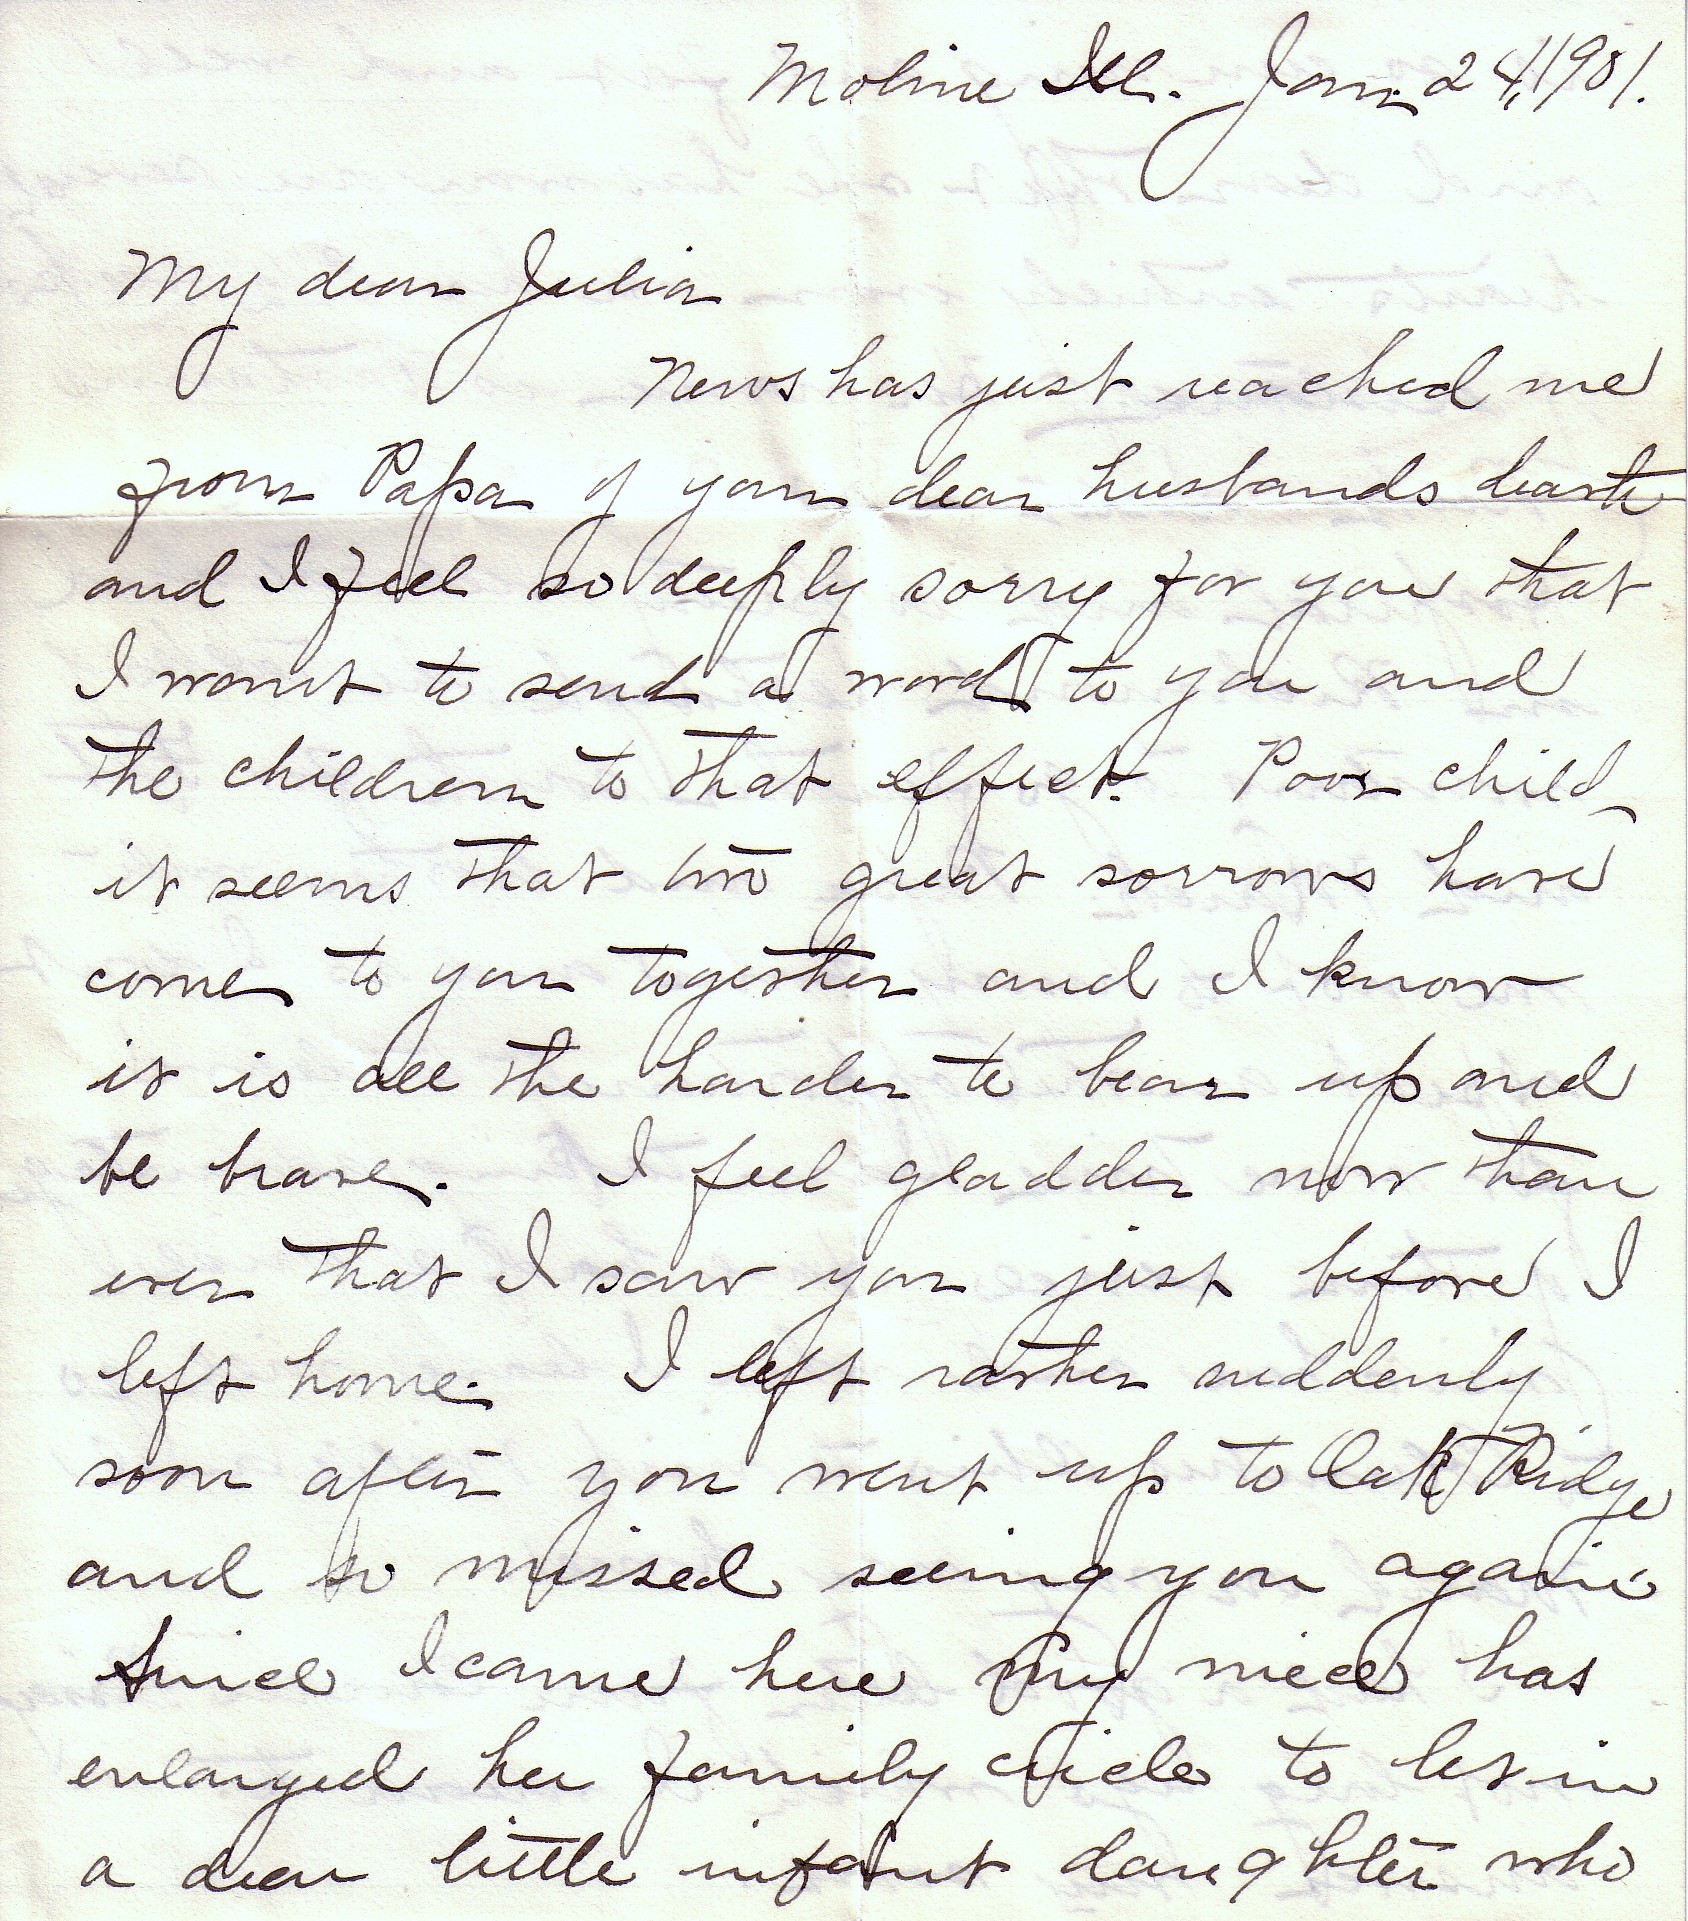 Moline Ill. Jan. 24, 1901.
My dear Julia
News has just reached me
from Papa of your dear husbands death
and I feel so deeply sorry for you that
I want to send a word to you and
the children to that effect. Poor child,
it seems that two great sorrows have
come to you together and I know
it is all the harder to bear up and
be brave. I feel gladder now than
ever that I saw you just before I
left home. I left rather suddenly
soon after you went up to Oak Ridge
and so missed seeing you again.
Since I came here my niece has
enlarged her family circle to let in
a dear little infant daughter who